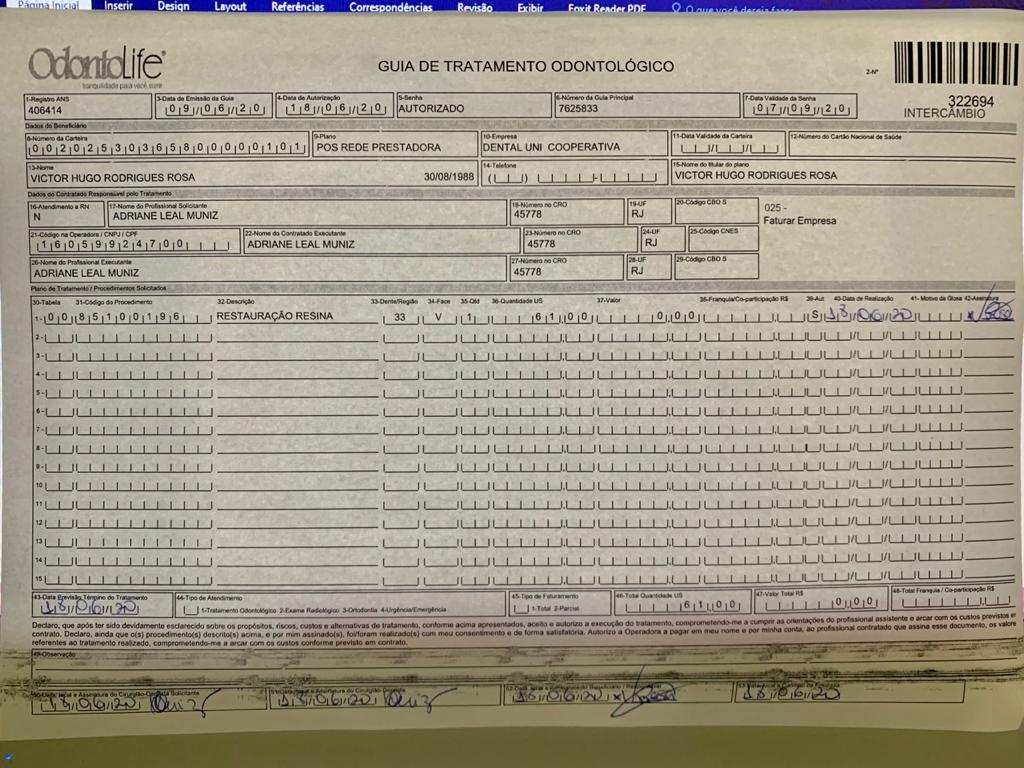 Página Inicial Inserir Design Layout Referências Correspondências Revisão Exibir Foxit Reader PDF O que você deseja fazer
OdontoLife®
tranquilidade para você sorrir
GUIA DE TRATAMENTO ODONTOLÓGICO
2-Nº
322694
INTERCÂMBIO
1-Registro ANS 3-Data de Emissão da Guia 4-Data de Autorização 5-Senha 6-Número da Guia Principal 7-Data Validade da Senha
406414 09/06/20 18/06/20 AUTORIZADO 7625833 07/09/20
Dados do Beneficiário
8-Número da Carteira 9-Plano 10-Empresa 11-Data Validade da Carteira 12-Número do Cartão Nacional de Saúde
00202530365800000101 POS REDE PRESTADORA DENTAL UNI COOPERATIVA
13-Nome 14-Telefone 15-Nome do titular do plano
VICTOR HUGO RODRIGUES ROSA 30/08/1988 VICTOR HUGO RODRIGUES ROSA
Dados do Contratado Responsável pelo Tratamento
16-Atendimento a RN 17-Nome do Profissional Solicitante 18-Número no CRO 19-UF 20-Código CBO S
N ADRIANE LEAL MUNIZ 45778 RJ
025 -
Faturar Empresa
21-Código na Operadora / CNPJ / CPF 22-Nome do Contratado Executante 23-Número no CRO 24-UF 25-Código CNES
16059924700 ADRIANE LEAL MUNIZ 45778 RJ
26-Nome do Profissional Executante 27-Número no CRO 28-UF 29-Código CBO S
ADRIANE LEAL MUNIZ 45778 RJ
Plano de Tratamento / Procedimentos Solicitados
30-Tabela 31-Código do Procedimento 32-Descrição 33-Dente/Região 34-Face 35-Qtd 36-Quantidade US 37-Valor 38-Franquia/Co-participação R$ 39-Aut 40-Data de Realização 41- Motivo da Glosa 42-Assinatura
1- 00 85100196 RESTAURAÇÃO RESINA 33 V 1 61,00 0,00 S 18/06/20
2-
3-
4-
5-
6-
7-
8-
9-
10
11
12
13
14
15
43-Data Previsão Término do Tratamento 44-Tipo de Atendimento 45-Tipo de Faturamento 46-Total Quantidade US 47-Valor Total R$ 48-Total Franquia / Co-participação R$
18/06/20 1-Tratamento Odontológico 2-Exame Radiológico 3-Ortodontia 4-Urgência/Emergência 1-Total 2-Parcial 61,00 0,00
Declaro, que após ter sido devidamente esclarecido sobre os propósitos, riscos, custos e alternativas de tratamento, conforme acima apresentados, aceito e autorizo a execução do tratamento, comprometendo-me a cumprir as orientações do profissional assistente e arcar com os custos previstos
contrato. Declaro, ainda que o(s) procedimento(s) descrito(s) acima, e por mim assinado(s), foi/foram realizado(s) com meu consentimento e de forma satisfatória. Autorizo a Operadora a pagar em meu nome e por minha conta, ao profissional contratado que assina esse documento, os valore
referentes ao tratamento realizado, comprometendo-me a arcar com os custos conforme previsto em contrato.
49-Observação
18/06/20 18/06/20 18/06/20 18/06/20